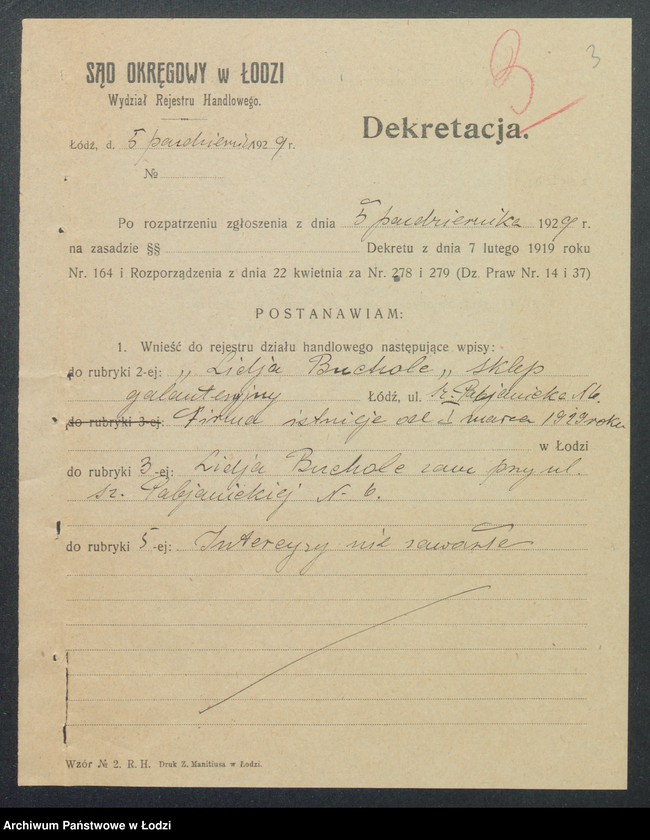 3
3
SĄD OKRĘGOWY w ŁODZI
Wydział Rejestru Handlowego.
Dekretacja.
Łódź, d. 5 październik 1929 r.
№
Po rozpatrzeniu zgłoszenia z dnia 5 października 1929 r.
na zasadzie §§ Dekretu z dnia 7 lutego 1919 roku
Nr. 164 i Rozporządzenia z dnia 22 kwietnia za Nr. 278 i 279 (Dz. Praw Nr. 14 i 37)
POSTANAWIAM:
1. Wnieść do rejestru działu handlowego następujące wpisy:
do rubryki 2-ej: „Lidja Buchole„ sklep
galanteryjny Łódź, ul. sz. Pabjanicka № 6.
do rubryki 3-ej: Firma istnieje od 1 marca 1929 roku.
w Łodzi
do rubryki 3-ej: Lidja Buchole zam przy ul.
sz. Pabjanickiej N- 6.
do rubryki 5-ej: Intercyzy nie zawarła
Wzór № 2. R. H. Druk Z. Manitiusa w Łodzi.
Archiwum Państwowe w Łodzi